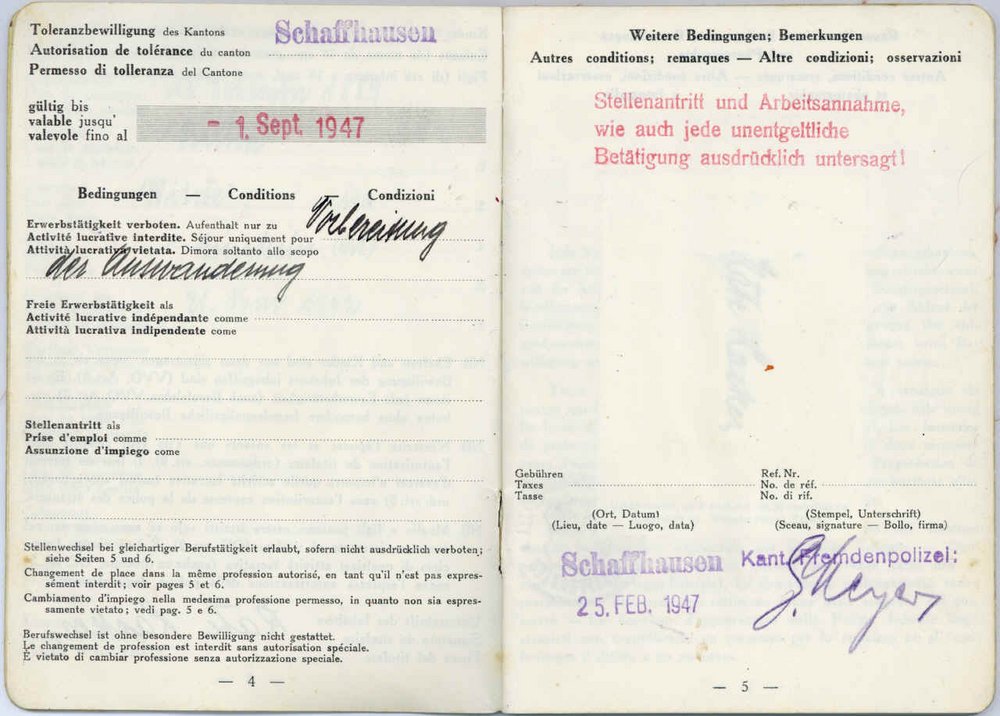 Toleranzbewilligung des Kantons Schaffhausen
Autorisation de tolérance du canton
Permesso di tolleranza del Cantone
gültig bis
valable jusqu'
valevole fino al - 1. Sept. 1947
Bedingungen — Conditions — Condizioni
Erwerbstätigkeit verboten. Aufenthalt nur zu Vorbereitung
Activité lucrative interdite. Séjour uniquement pour
Attività lucrativa vietata. Dimora soltanto allo scopo
der Auswanderung
Freie Erwerbstätigkeit als
Activité lucrative indépendante comme
Attività lucrativa indipendente come
Stellenantritt als
Prise d'emploi comme
Assunzione d'impiego come
Stellenwechsel bei gleichartiger Berufstätigkeit erlaubt, sofern nicht ausdrücklich verboten;
siehe Seiten 5 und 6.
Changement de place dans la même profession autorisé, en tant qu'il n'est pas expres-
sément interdit; voir pages 5 et 6.
Cambiamento d'impiego nella medesima professione permesso, in quanto non sia espres-
samente vietato; vedi pag. 5 e 6.
Berufswechsel ist ohne besondere Bewilligung nicht gestattet.
Le changement de profession est interdit sans autorisation spéciale.
È vietato di cambiar professione senza autorizzazione speciale.
— 4 —
Weitere Bedingungen; Bemerkungen
Autres conditions; remarques — Altre condizioni; osservazioni
Stellenantritt und Arbeitsannahme,
wie auch jede unentgeltliche
Betätigung ausdrücklich untersagt!
Gebühren
Taxes
Tasse
Ref. Nr.
No. de réf.
No. di rif.
(Ort, Datum)
(Lieu, date — Luogo, data)
(Stempel, Unterschrift)
(Sceau, signature — Bollo, firma)
Schaffhausen
25. FEB. 1947
Kant. Fremdenpolizei:
Meyer
— 5 —